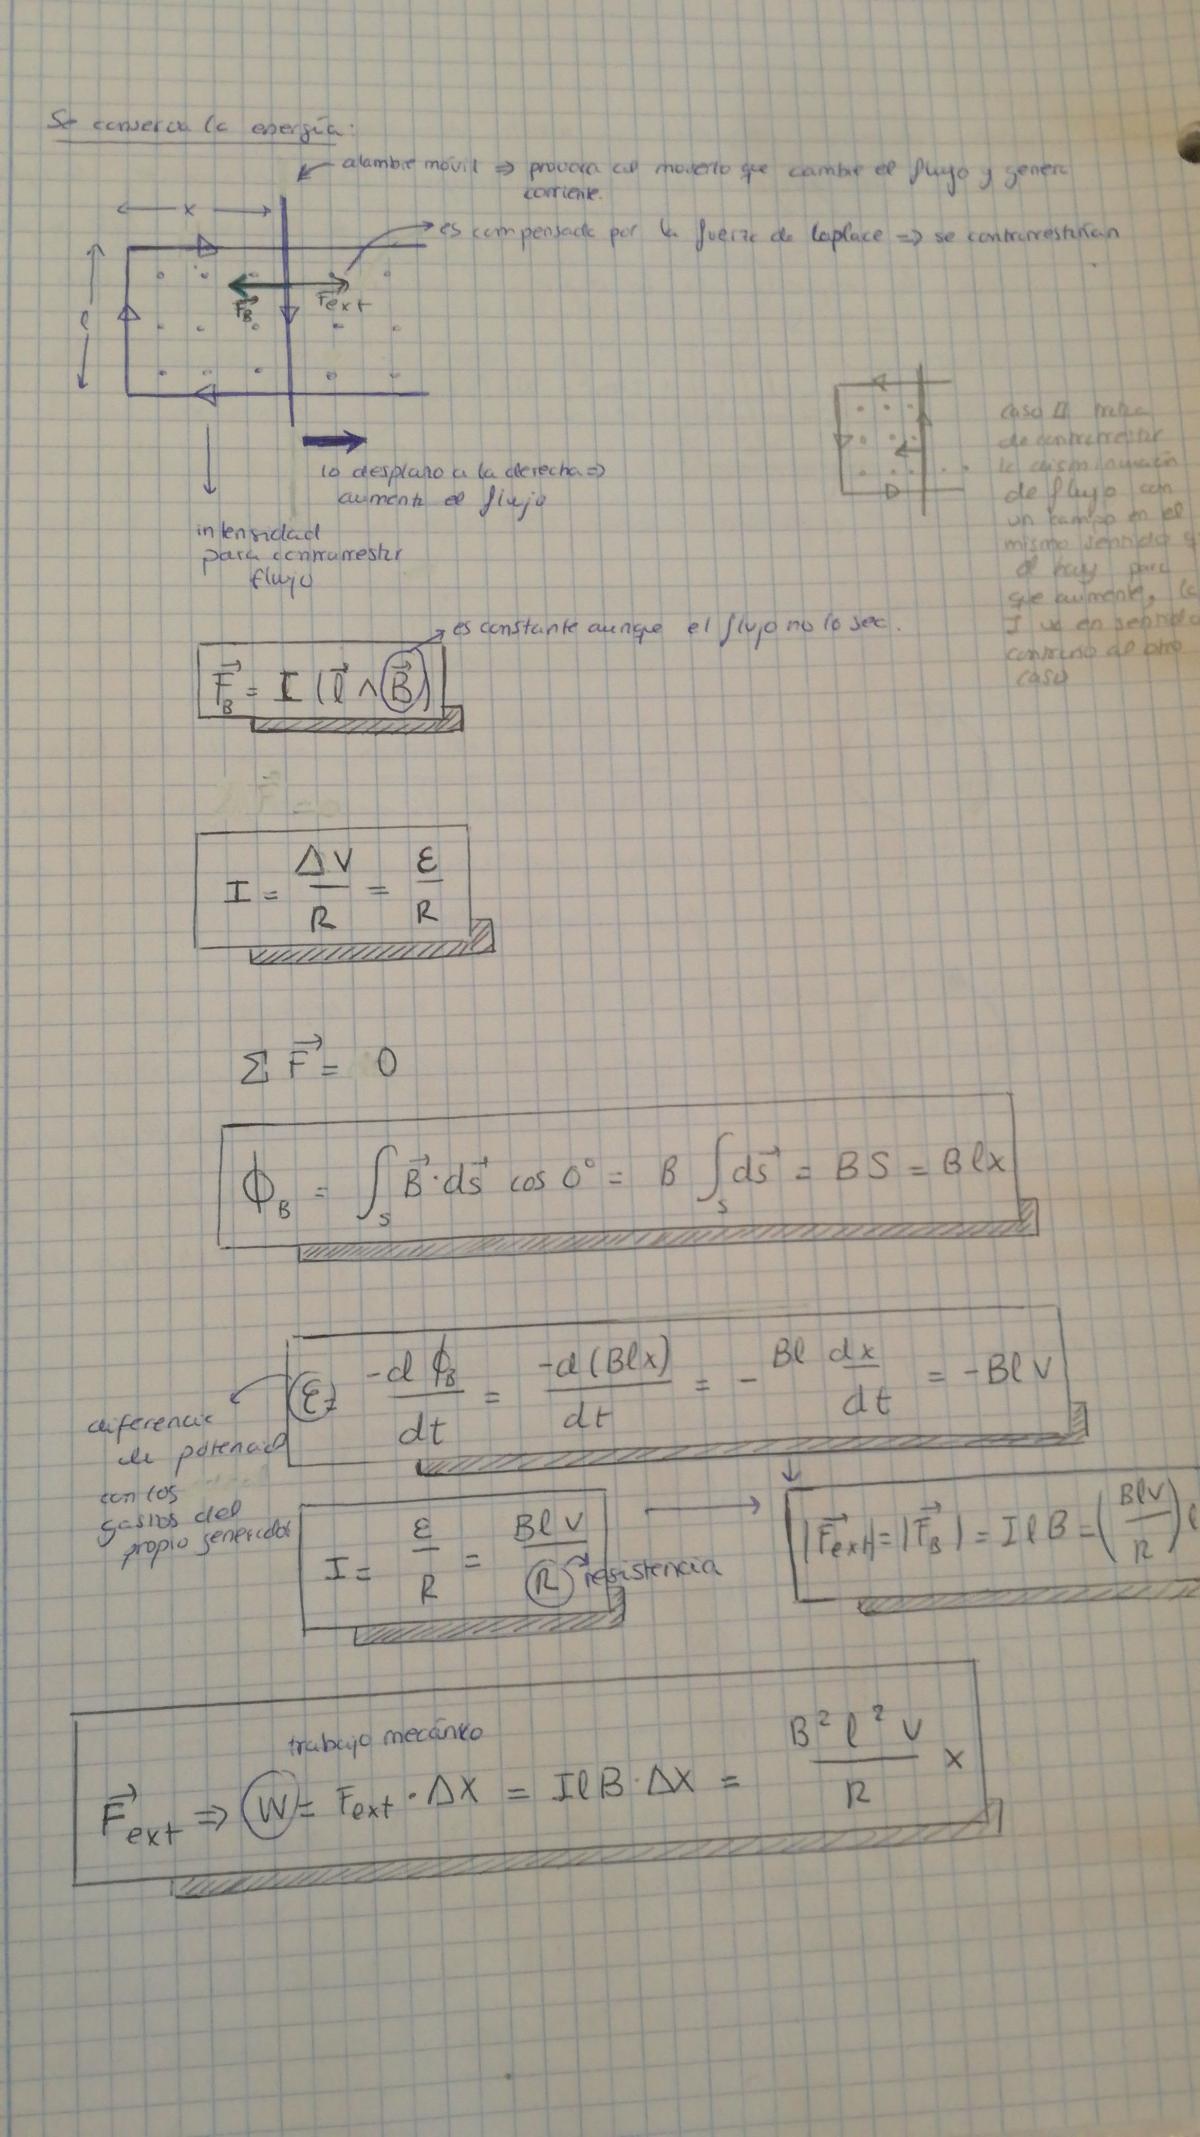 Se conserva la energía:
alambre móvil ⇒ provoca al moverlo que cambie el flujo y genera
corriente.
x
es compensada por la fuerza de laplace ⇒ se contrarrestarían
l
F⃗B F⃗ext
lo desplazo a la derecha ⇒
aumenta el flujo
intensidad
para contrarrestar
flujo
caso II trata
de contrarrestar
la disminución
de flujo con
un campo en el
mismo sentido q
el hay para
que aumente, la
I va en sentido
contrario al otro
caso
es constante aunque el flujo no lo sea.
F⃗B = I (l⃗ ∧ B⃗)
I = ΔV/R = ε/R
Σ F⃗ = 0
ϕB = ∫s B⃗·ds⃗ cos 0° = B ∫s ds⃗ = BS = Blx
ε = -dϕB/dt = -d(Blx)/dt = - Bl dx/dt = -Blv
diferencia
de potencial
con los
gastos del
propio generador
I = ε/R = Blv/R resistencia
|F⃗ext| = |F⃗B| = IlB = (Blv/R) l
trabajo mecánico
F⃗ext ⇒ W = Fext · Δx = IlB · Δx = B²l²v/R x